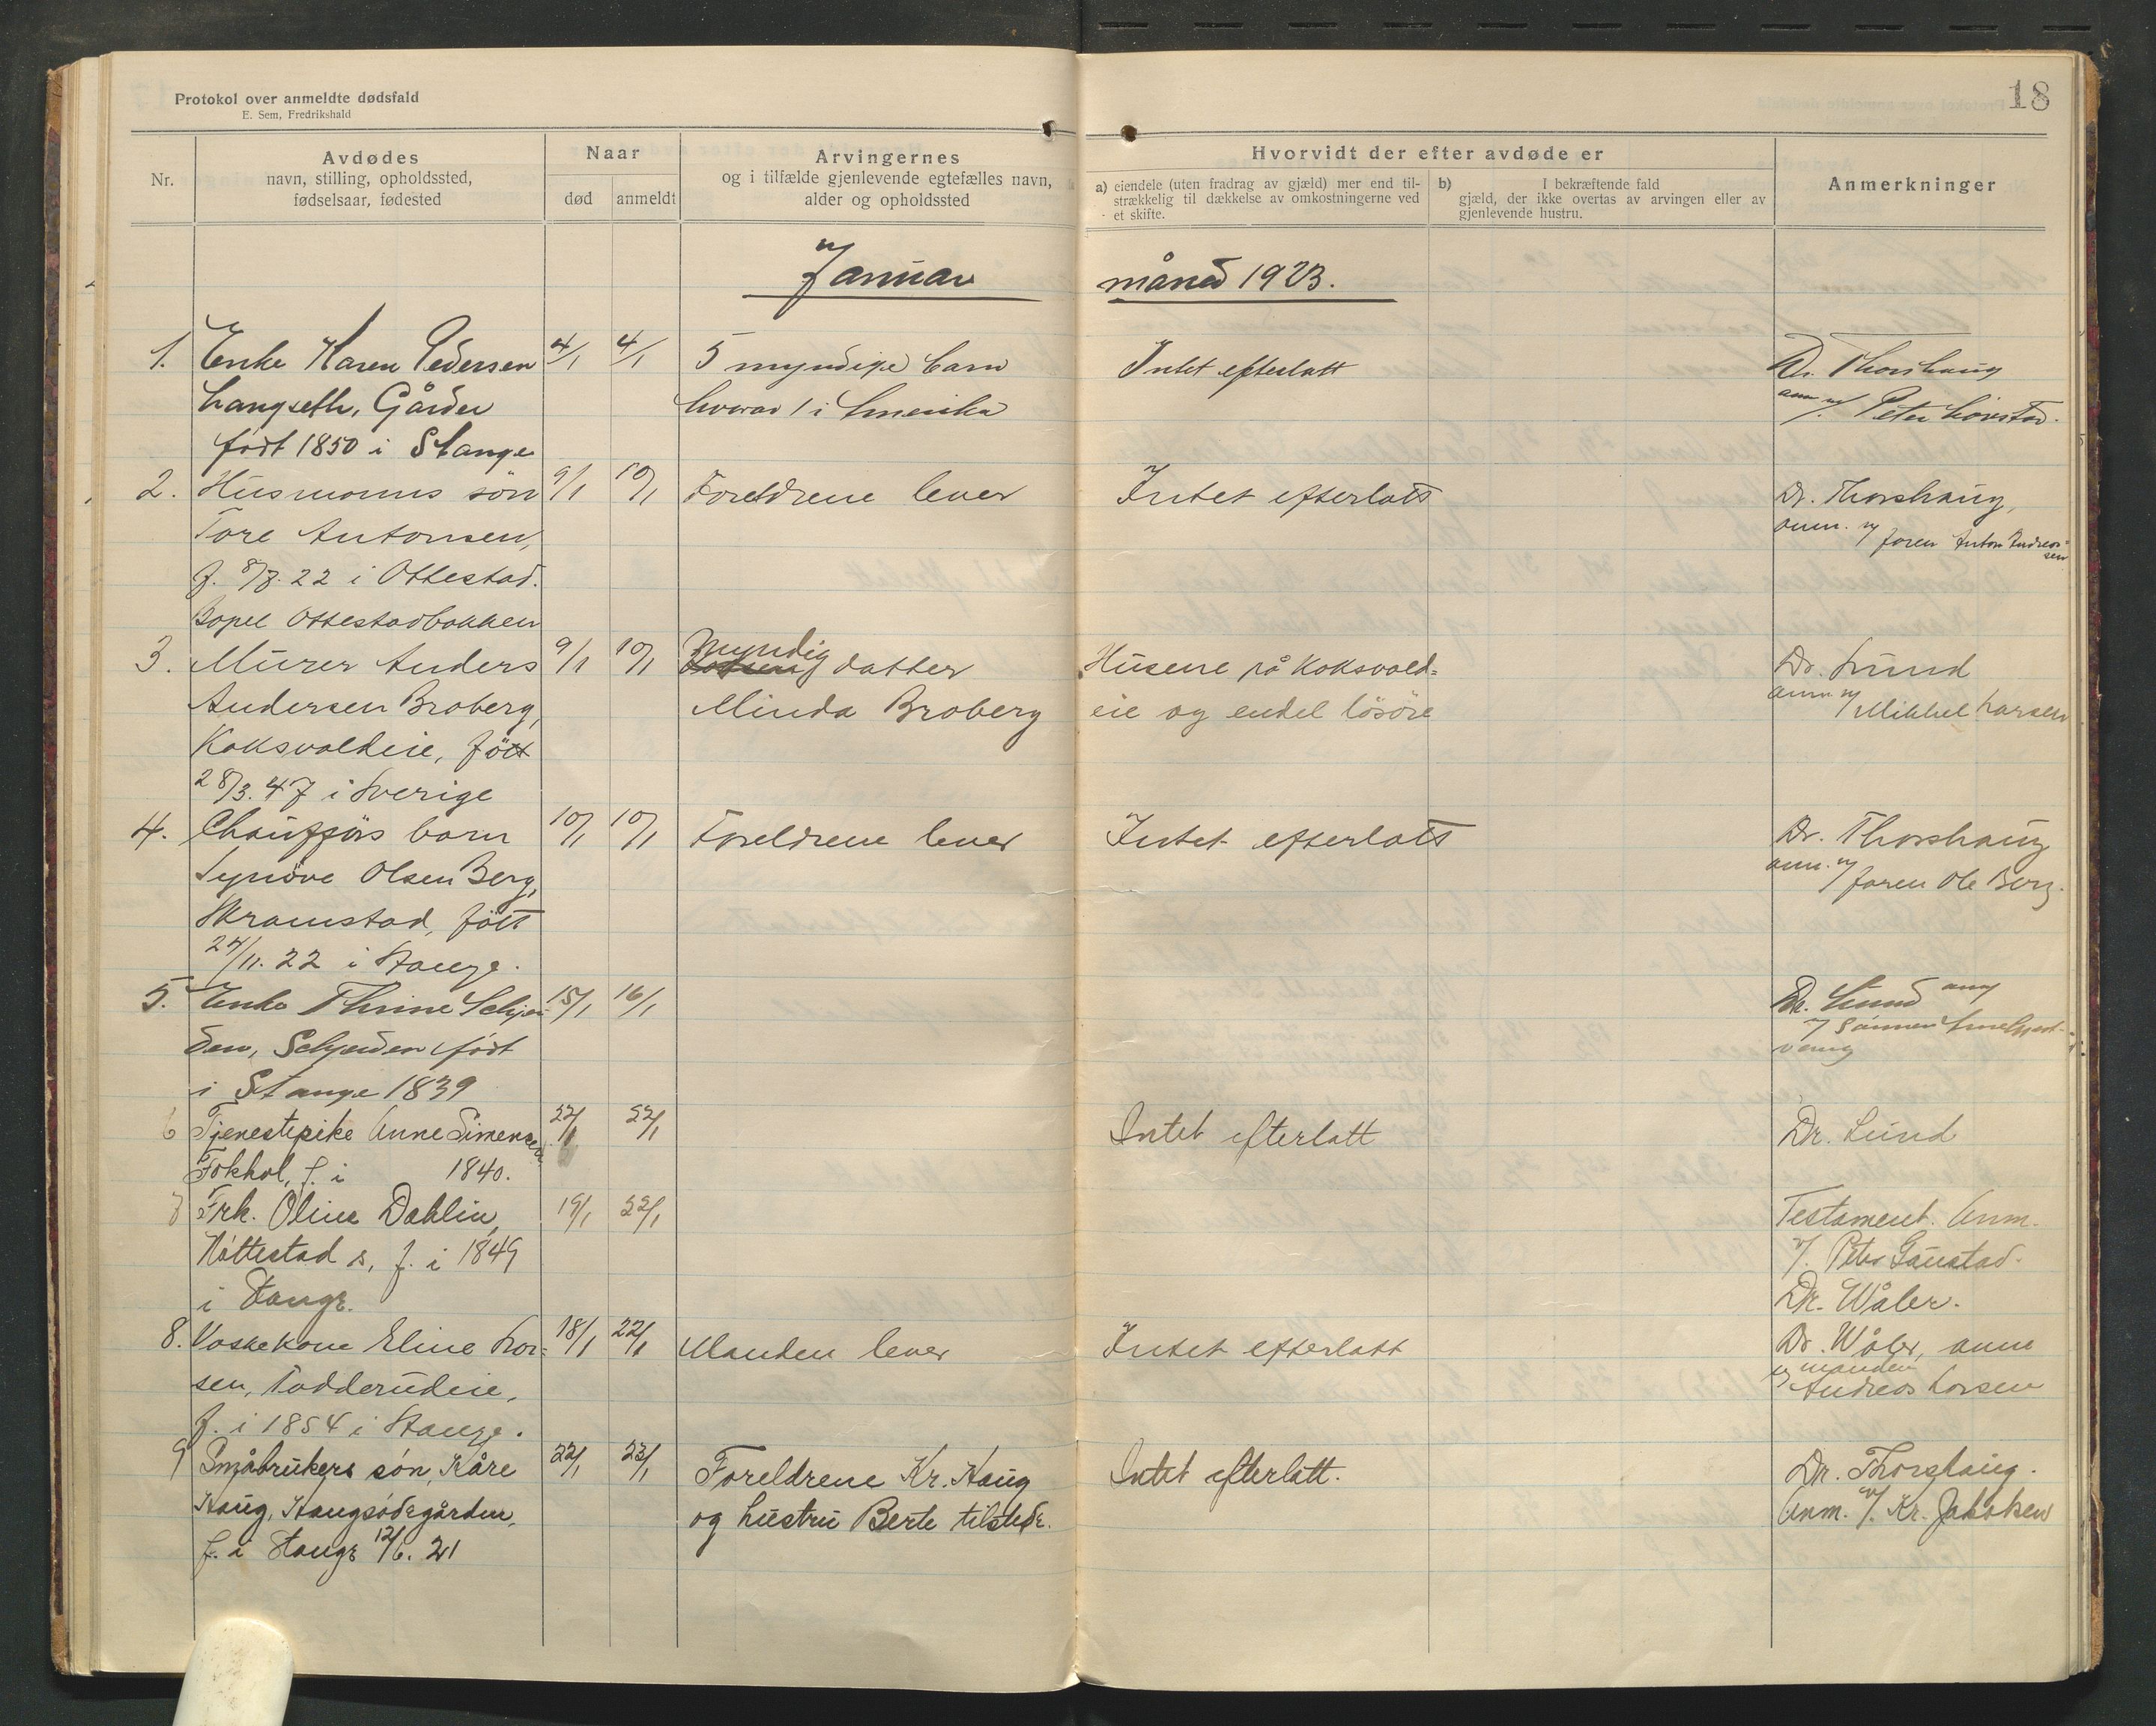 18
Protokol over anmeldte dødsfald
E. Sem, Fredrikshald
Nr.
Avdødes
navn, stilling, opholdssted,
fødselsaar, fødested
Naar
død
anmeldt
Arvingernes
og i tilfælde gjenlevende egtefælles navn,
alder og opholdssted
Hvorvidt der efter avdøde er
a) eiendele (uten fradrag av gjæld) mer end til-
strækkelig til dækkelse av omkostningerne ved
et skifte.
b) I bekræftende fald
gjæld, der ikke overtas av arvingen eller av
gjenlevende hustru.
Anmerkninger
Januar måned 1923.
1. Enke Karen Pedersen 4/1 4/1 5 myndige barn Intet efterlatt Dr. Thorshaug
Langseth, Gården hvorav 1 i Amerika anm v/. Peter
født 1850 i Stange
2. Husmanns søn 9/1 10/1 Foreldrene lever Intet efterlatt Dr. Thorshaug,
Tore Antonsen, anm. v/ faren Anton Andreas-
sen
f. 8/8.22 i Ottestad.
Bopel Ottestadbakken
3. Murer Anders 9/1 10/1 Myndig datter Husene på Koksvold- Dr. Lund
Andersen Broberg, Minda Broberg eie og endel lösöre anm. v/ Mikkel Larsen
Koksvoldeie, fött
28/3.47 i Sverige
4. Chaufførs barn 10/1 10/1 Foreldrene lever Intet efterlatt Dr. Thorshaug
Synöve Olsen Berg, anm. v/ faren Ole Berg.
Skramstad, fött
24/11.22 i Stange.
5. Enke Thrine Schjer 15/1 16/1 Dr. Lund anm
den, Schjerden født v/ sønnen
i Stange 1839
6 Tjenestepike Anne Simensen 22/1 22/1 Intet efterlatt Dr. Lund
Fokhol, f. i 1840.
7 Frk. Oline Dahlin, 19/1 22/1 Testament. Anm.
Hóttestad s, f. i 1849 v/. Peter
i Stange. Dr. Wåler.
8. Vaskekone Eline Lar- 18/1 22/1 Manden lever Intet efterlatt Dr. Wåler, anm
sen, Todderudeie, v/ manden Andreas Larsen
f. i 1854 i Stange.
9 Småbrukers søn, Kåre 22/1 23/1 Foreldrene Kr. Haug Intet efterlatt. Dr. Thorshaug.
Haug, Haugsødegården, og hustru Berte tilstede. Anm. v/. Kr. Jakobsen
f. i Stange 12/6. 21